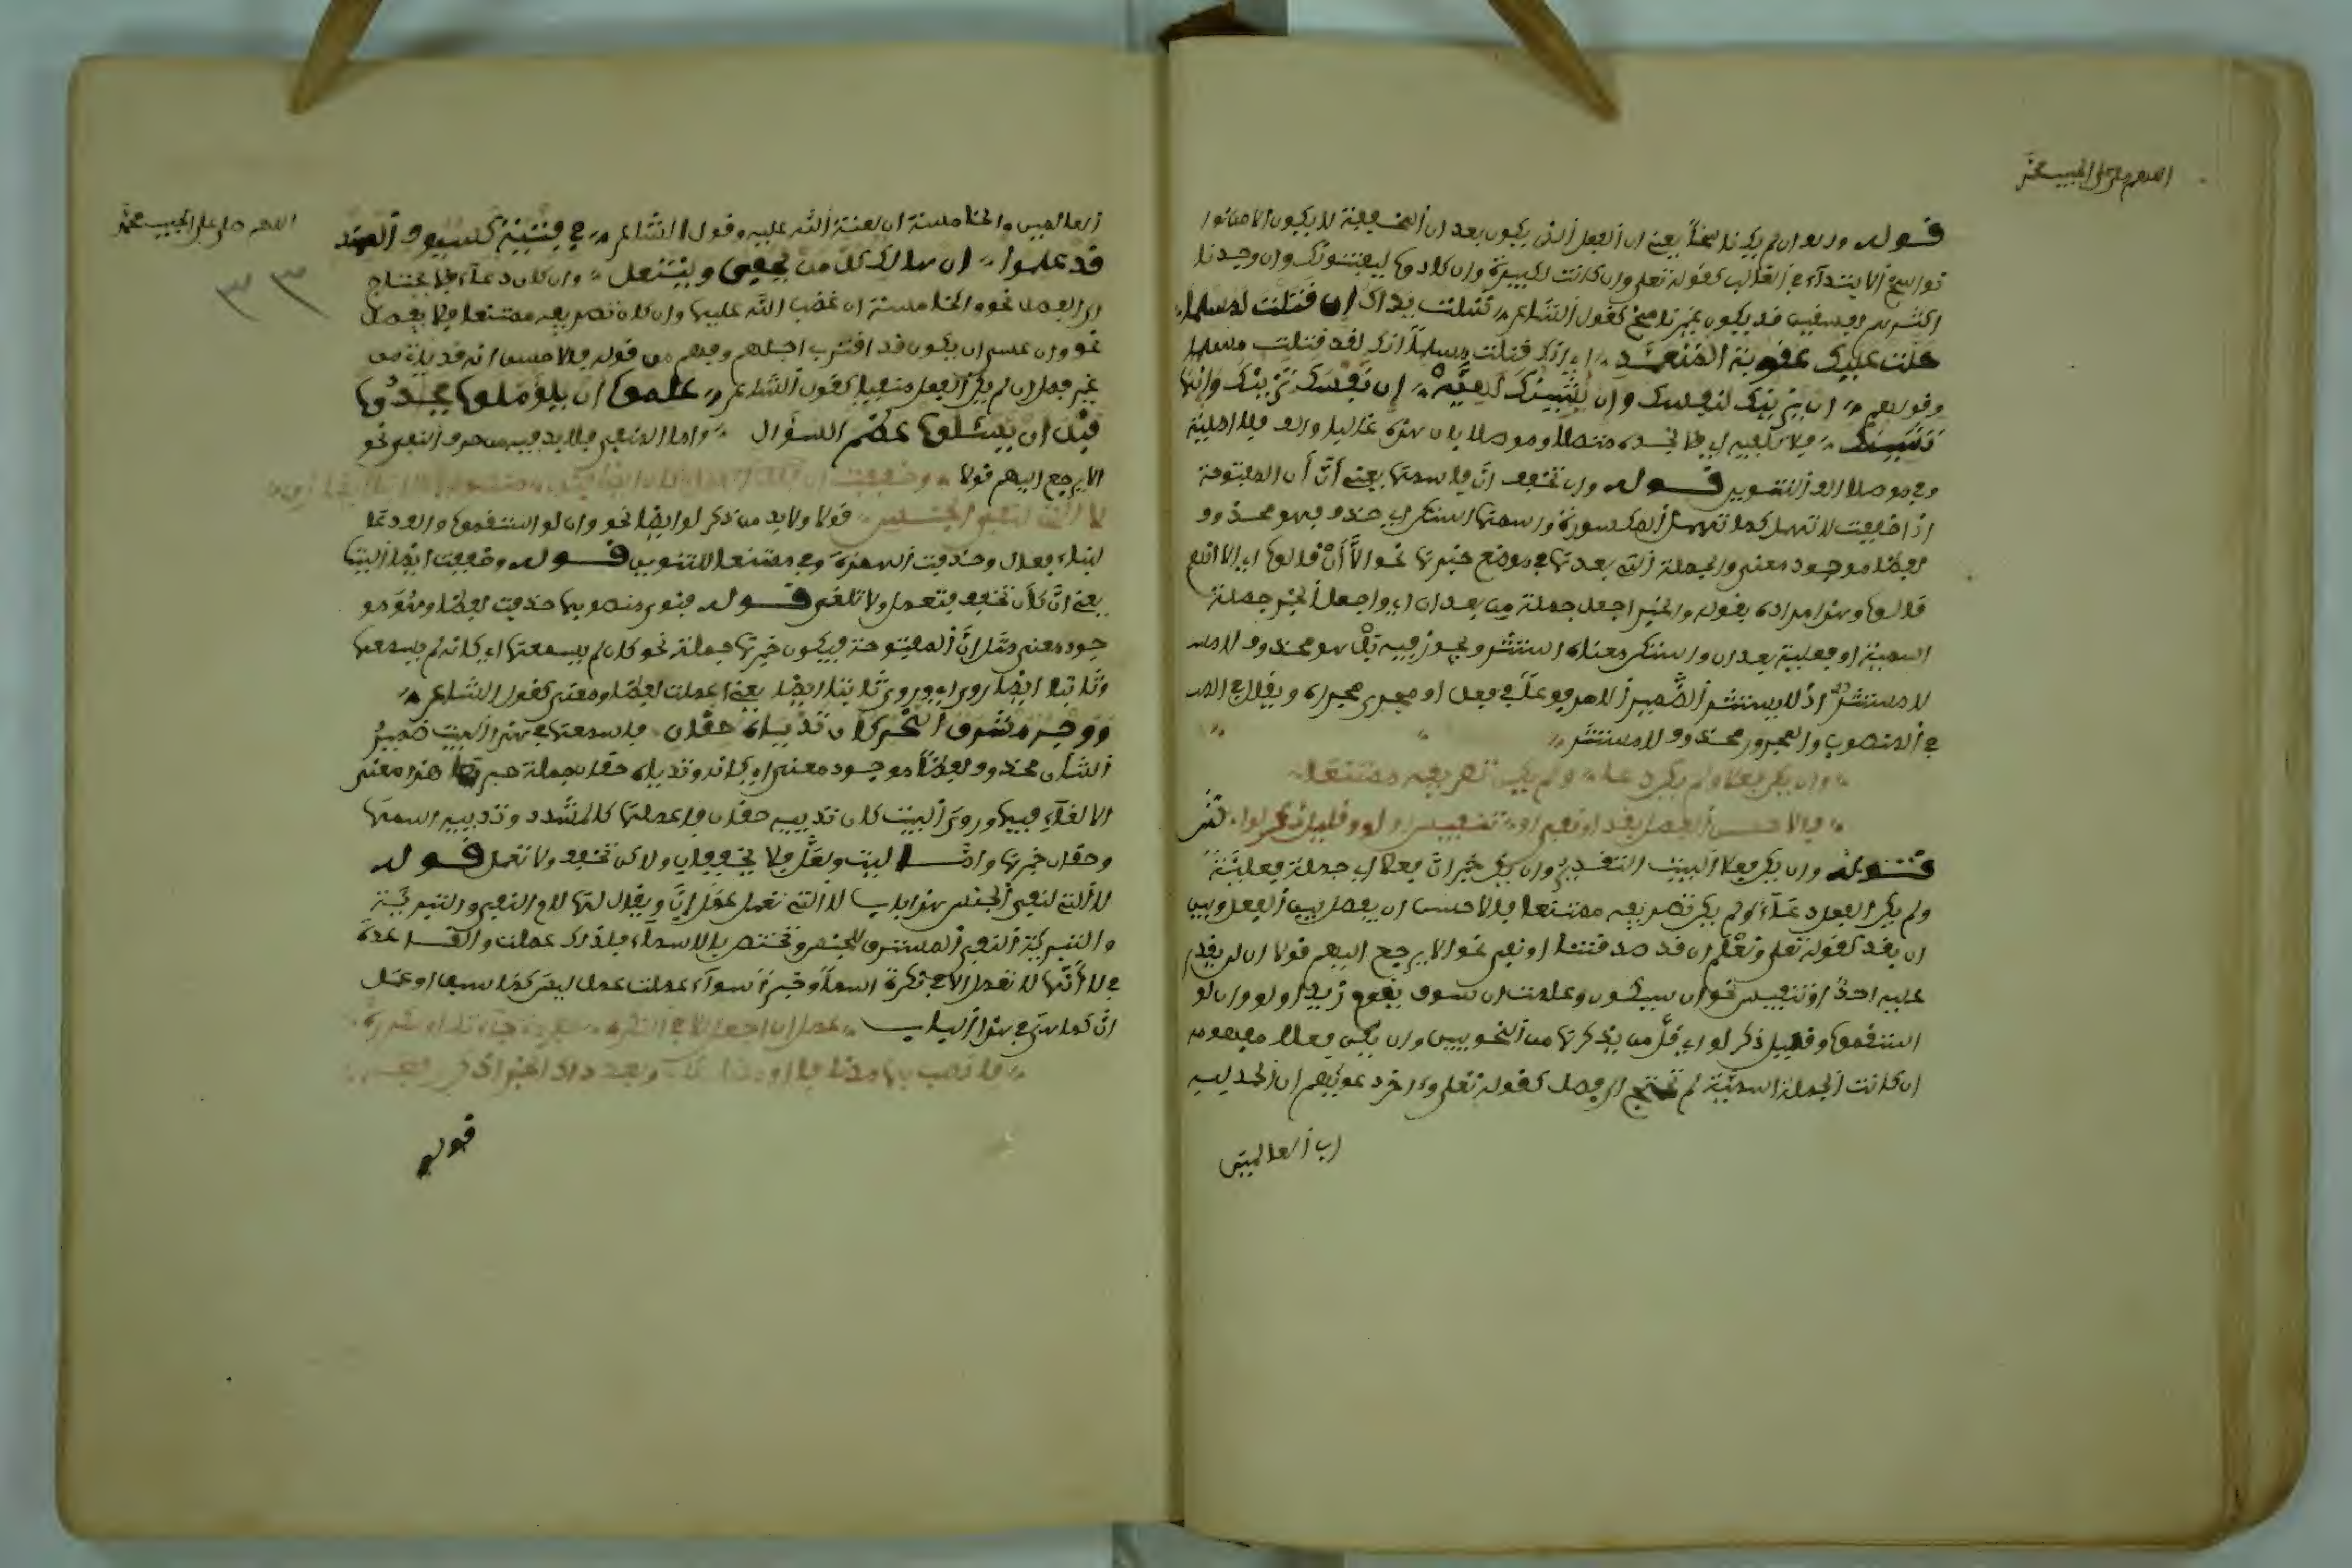 اللهم صل على الحبيب محمد
قوله وربما ان لم يك ناسخا يعني ان الفعل الذي يكون بعد ان المخففة لا يكون الا من
نواسخ الابتداء في الغالب كقوله تعلى وان كانت لكبيرة وان كادوا ليفتنونك وان وجدنا
اكثرهم لفسقين قد يكون غير ناسخ كقول الشاعر شلت يداك ان قتلت لمسلما
حلت عليك عقوبة المتعمد اي انك قتلت مسلما انك لقد قتلت مسلما
وقولهم ان يزينك لنفسك وان يشينك لهيه ان نفسك تزينك وانها
تشينك فلا تلفيه اي فلا تجده متصلا وموصلا بان هذه غالبا والف فلا اصلية
وفي موصلا الف التنوين قوله وان تخفف ان فاسمها يعني ان أن المفتوحة
اذا خففت لا تهمل كما تهمل المكسورة واسمها استكن اي حذف فهو محذوف
لفظا موجود معنى والجملة التي بعدها في موضع خبرها نحو الا أن قالوا اي الا انهم
قالوا وهذا مراده بقوله والخبر اجعل جملة من بعد ان اي واجعل الخبر جملة
اسمية او فعلية بعد ان واستكن معناه استتر ويجوز فيه بل هو محذوف لا مستتر
لا مستتر اذ لا يستتر الضمير الا مرفوعا في فعل او مجرى مجراه ويقال
في المنصوب والمجرور محذوف لا مستتر
وان يكن فعلا ولم يكن دعا ولم يكن تصريفه ممتنعا
فالاحسن الفصل بقد او نفي او تنفيس او لو وقليل ذكر لو
قوله وان يكن فعلا البيت التقدير وان يكن خبر ان فعلا اي جملة فعلية
ولم يكن الفعل دعاء ولم يكن تصريفه ممتنعا فالاحسن ان يفصل بين الفعل وبين
ان بقد كقوله تعلى ونعلم ان قد صدقتنا او نفي نحو الا يرجع اليهم قولا ان لن يقدر
عليه احد او تنفيس نحو ان سيكون وعلمت ان سوف يقوم زيد او لو وان لو
استقموا وقليل ذكر لو اي قل من يذكرها من النحويين وان يكن فعلا مفهومه
ان كانت الجملة اسمية لم تحتج الى فصل كقوله تعلى واخر دعويهم ان الحمد لله
رب العالمين
اللهم صل على الحبيب محمد
٣٣
العالمين والخامسة ان لعنة الله عليه وقول الشاعر في فتية كسيوف الهند
قد علموا ان هالك كل من يحفى وينتعل وان كان دعاء فلا يحتاج
الى الفصل نحو والخامسة ان غضب الله عليها وان كان تصريفه ممتنعا فلا يفصل
نحو وان عسى ان يكون قد اقترب اجلهم وفهم من قوله فالاحسن انه قد ياتي من
غير فصل ان لم يكن الفعل منفيا كقول الشاعر علموا ان يؤملون فجادوا
قبل ان يسئلوا بأعظم السؤال واما المنفي فلا بد فيه من حرف النفي نحو
الا يرجع اليهم قولا وخففت
لا التي لنفي الجنس قولا ولا بد من ذكر لو ايضا نحو وان لو استقموا والف دعا
لبناء فعال وحذفت الهمزة وفي ممتنعا للتنوين قوله وخففت ايضا البيت
يعني ان كأن تخفف فتعمل ولا تلغى قوله فنوي منصوبها حذفت لفظا وهو مو
جود معنى مثل ان المفتوحة فيكون خبرها جملة نحو كان لم يسمعها اي كانه لم يسمعها
وثابتا ايضا روي اي وروي ثابتا ايضا يعني اعملت لفظا ومعنى كقول الشاعر
ووجه مشرق النحر كان ثدياه حقان فاسمها في هذا البيت ضمير
الشان محذوف لفظا موجود معنى اي كانه وثدياه حقان جملة خبرها هذا معنى
الالغاء فيها وروي البيت كان ثدييه حقان فاعملها كالمشدد وثدييه اسمها
وحقان خبرها واما ليت ولعل فلا يخففان ولاكن تخفف ولا تعمل قوله
لا التي لنفي الجنس هذا باب لا التي تعمل عمل ان ويقال لها لام النفي والتبرئة
والتبرئة النفي المستغرق للجنس وتختص بالاسماء فلذلك عملت والقاعدة
في لا أنها لا تعمل الا في نكرة اسما وخبرا سواء عملت عمل ليس كما سبق او عمل
ان كما هي في هذا الباب عمل ان اجعل للا في نكره مفردة جاءتك او مكرره
فانصب بها مضافا او مضارعه وبعد ذاك الخبر اذكر رافعه
قوله